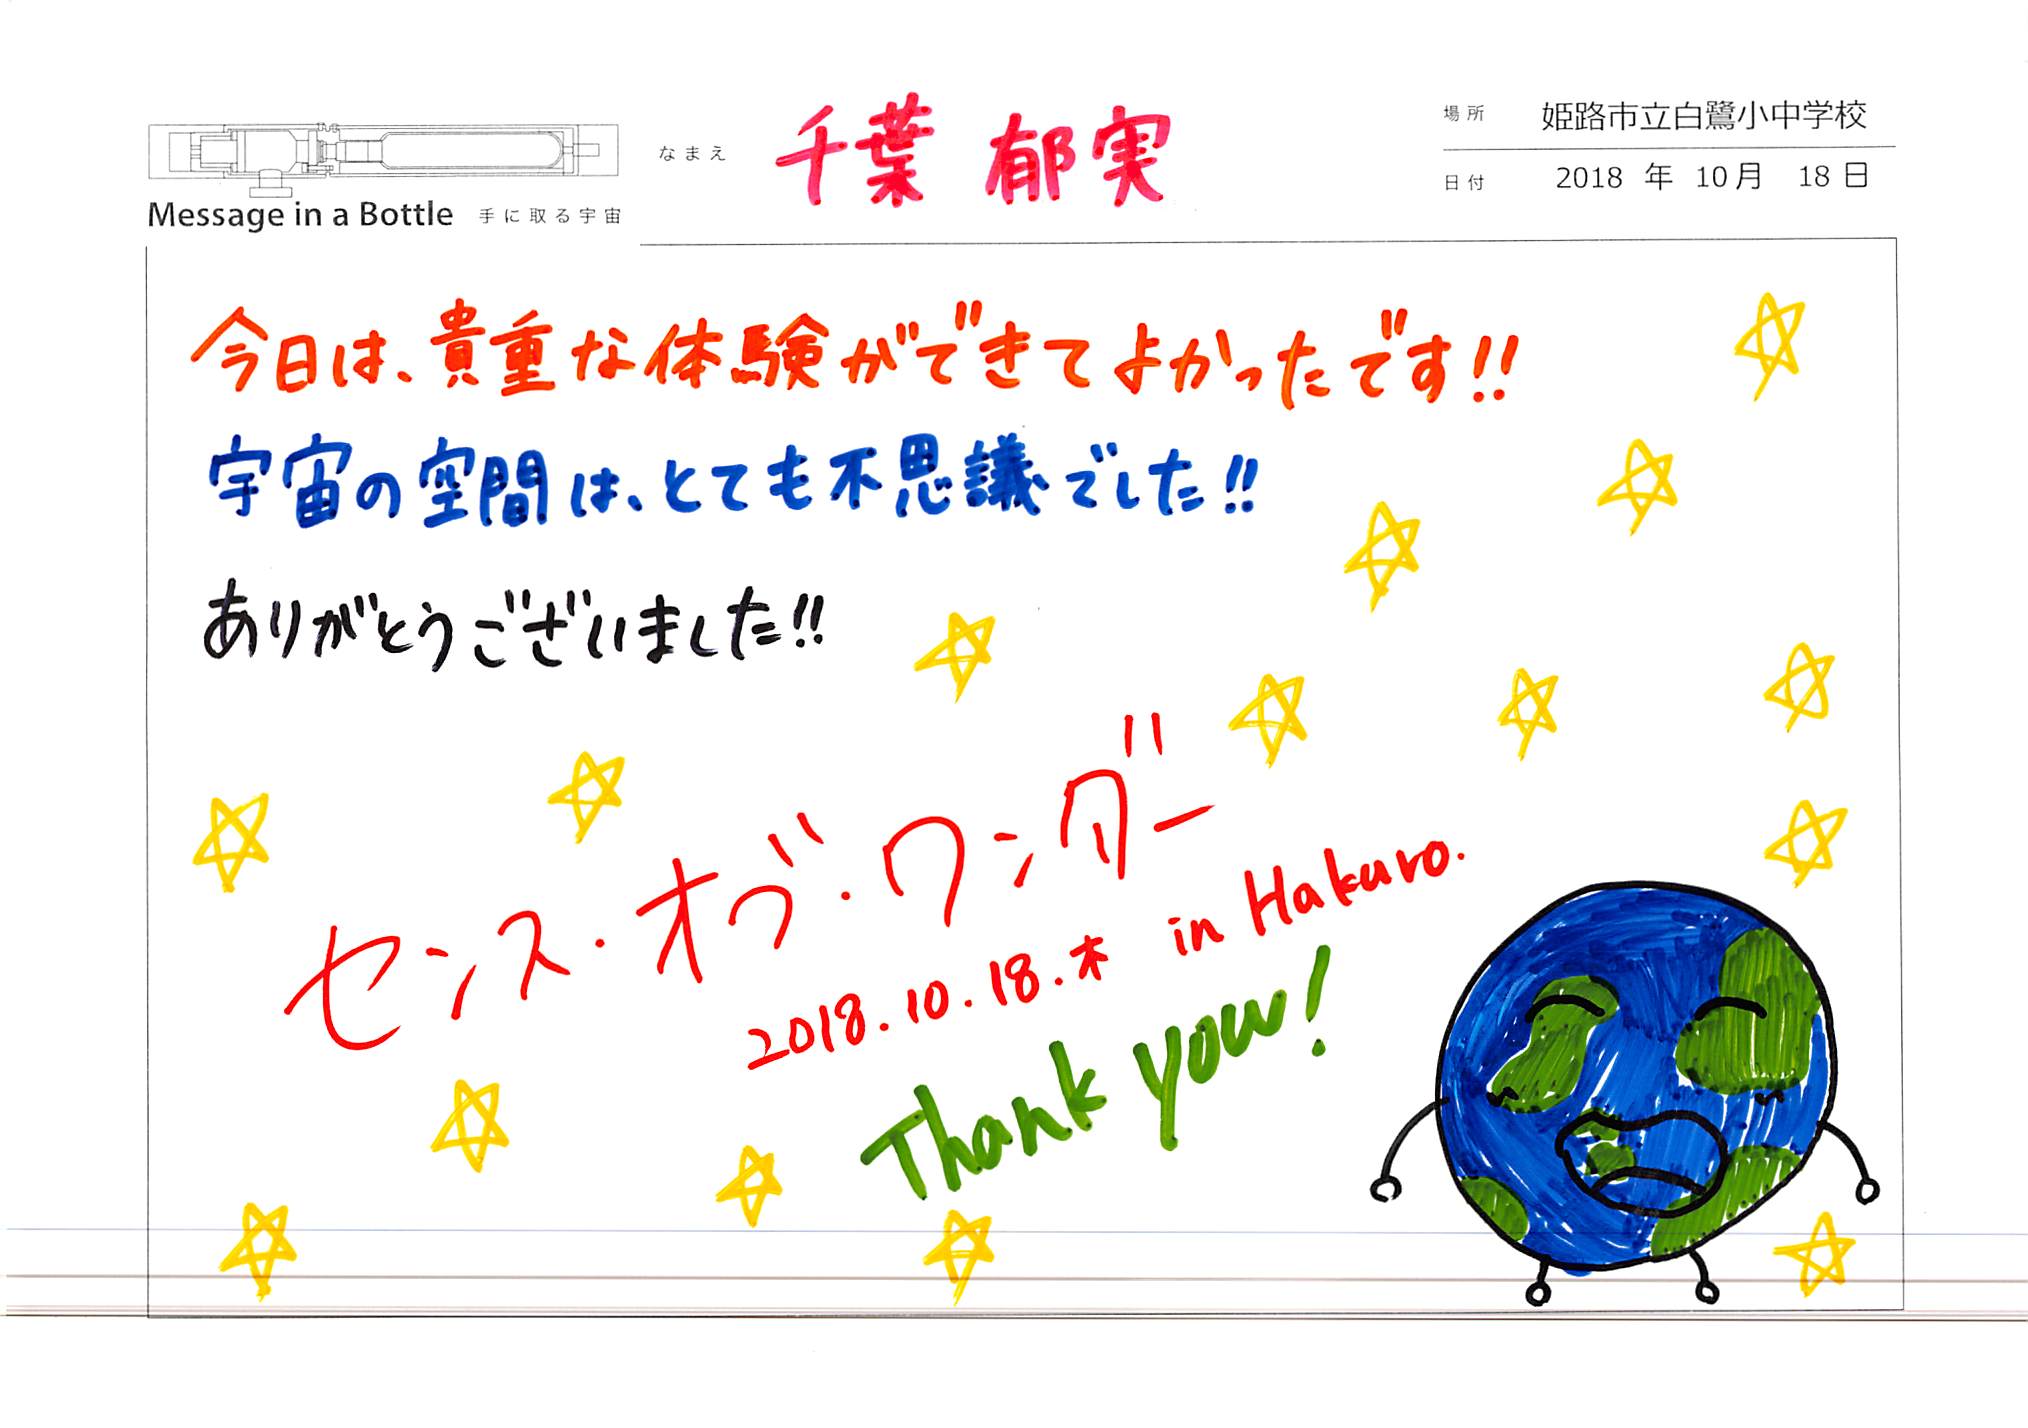 Message in a Bottle 手に取る宇宙
なまえ 千葉 郁実
場所 姫路市立白鷺小中学校
日付 2018 年 10月 18日
今日は、貴重な体験ができてよかったです!!
宇宙の空間は、とても不思議でした!!
ありがとうございました!!
センス・オブ・ワンダー
2018.10.18.木 in Hakuro.
Thank you!